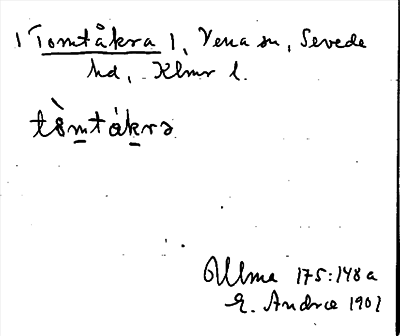 1 Tomtåkra 1, Vena sn, Sevede
hd, Klmr l.
tòmtákrə
Ulma 175:148a
E. Andræ 1901